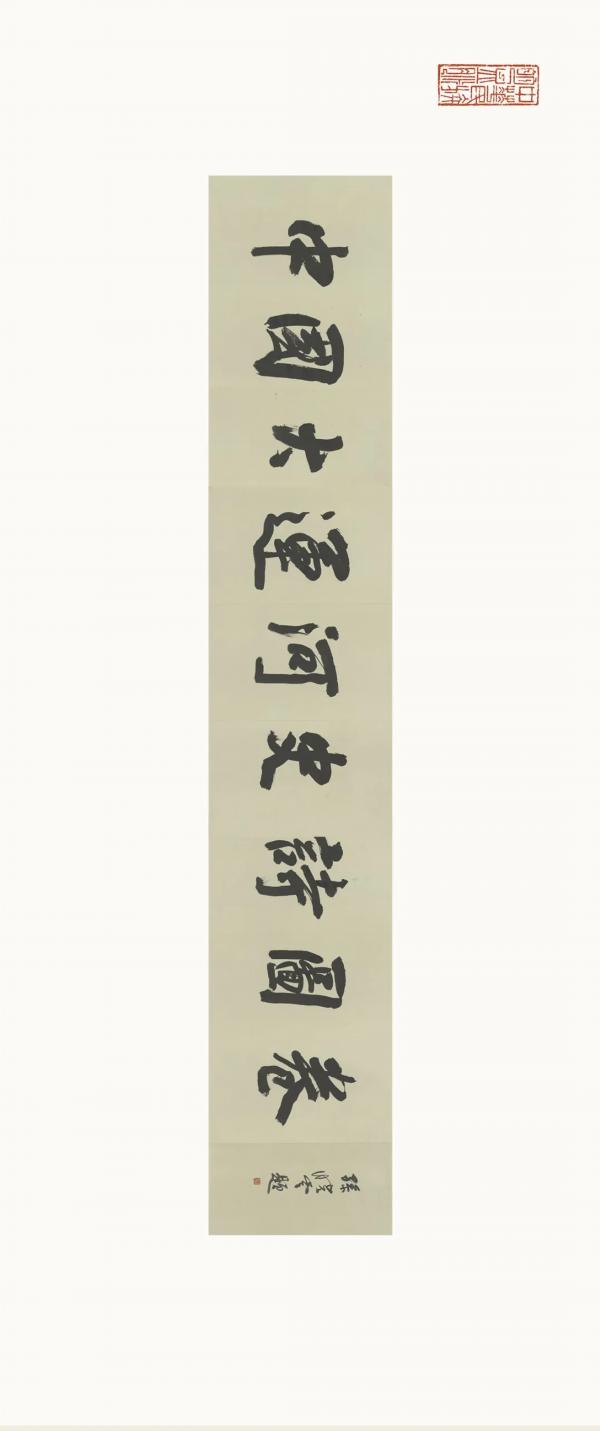 中國大運河史詩圖卷
孫曉雲題